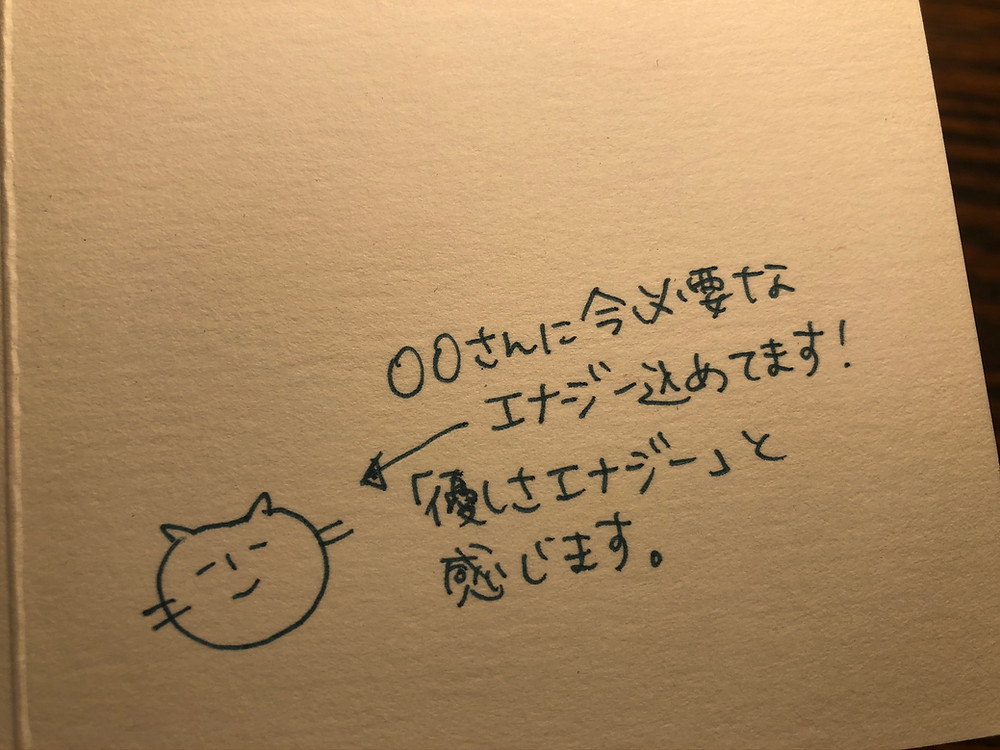 〇〇さんに今必要な
エナジー込めてます!
「優しさエナジー」と
感じます。